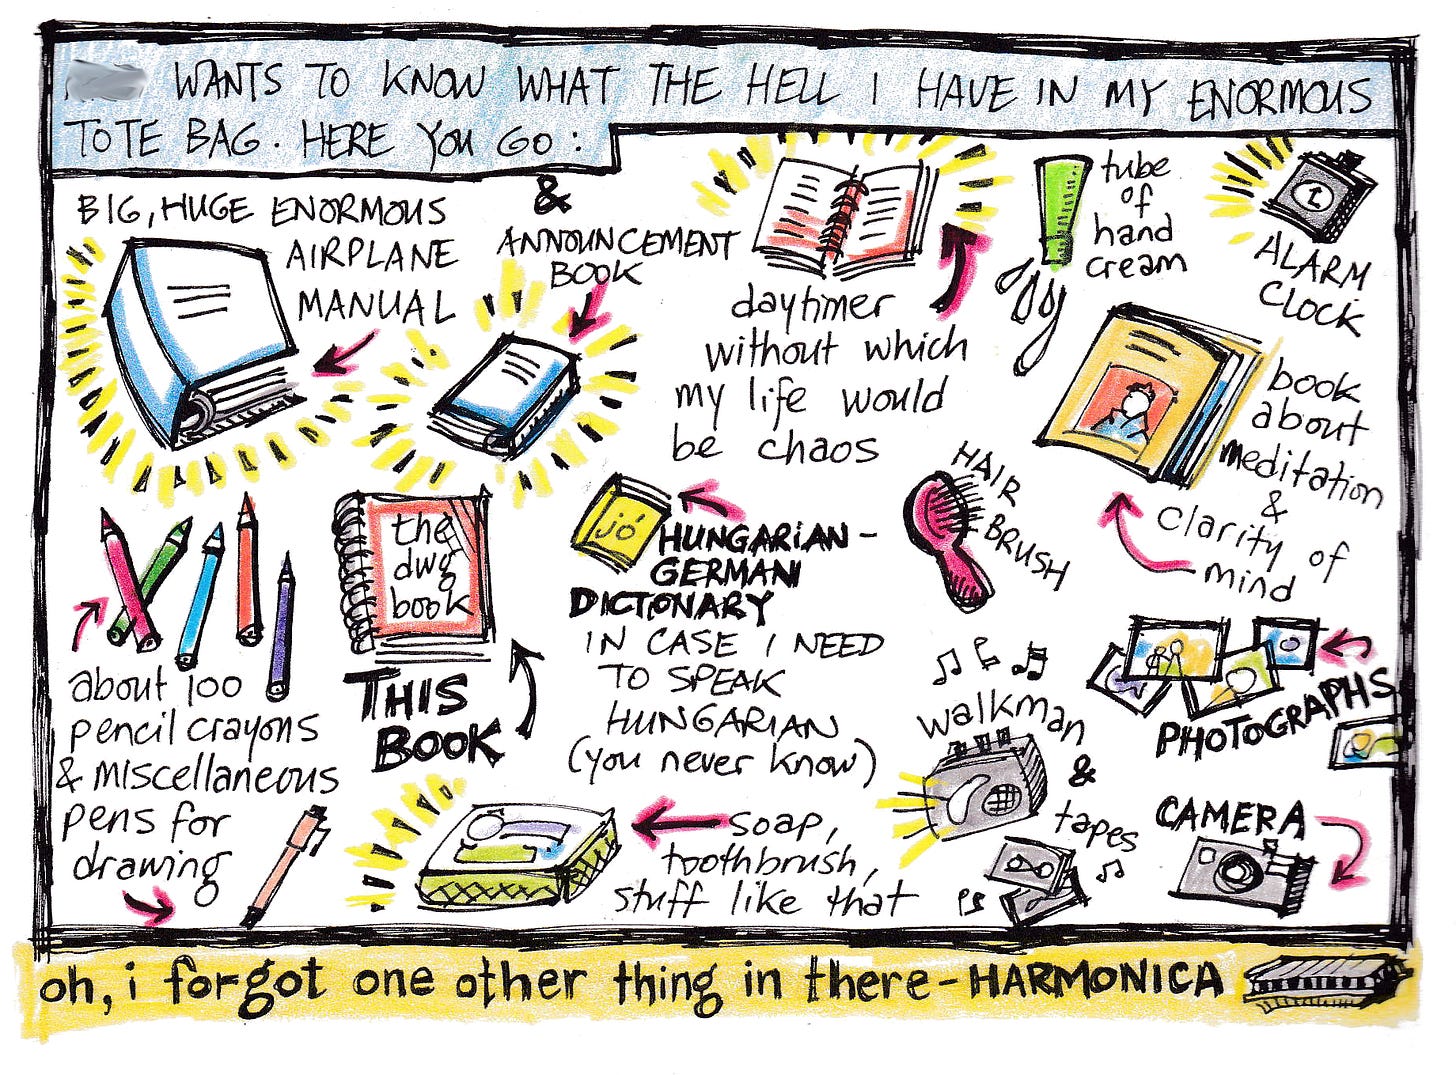 WANTS TO KNOW WHAT THE HELL I HAVE IN MY ENORMOUS
TOTE BAG. HERE YOU GO:
BIG, HUGE ENORMOUS
AIRPLANE
MANUAL
&
ANNOUNCEMENT
BOOK
daytimer
without which
my life would
be chaos
tube
of
hand
cream
ALARM
CLOCK
book
about
meditation
&
clarity of
mind
HAIR
BRUSH
about 100
pencil crayons
& miscellaneous
pens for
drawing
the
dwg
book
THIS
BOOK
jó
HUNGARIAN-
GERMAN
DICTONARY
IN CASE I NEED
TO SPEAK
HUNGARIAN
(you never know)
walkman
&
tapes
PHOTOGRAPHS
CAMERA
soap,
toothbrush,
stuff like that
oh, i forgot one other thing in there - HARMONICA